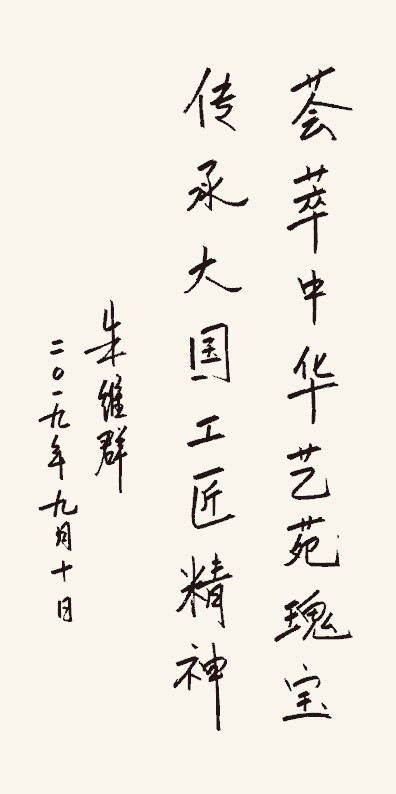 荟萃中华艺苑瑰宝
传承大国工匠精神
朱维群
二〇一九年九月十日